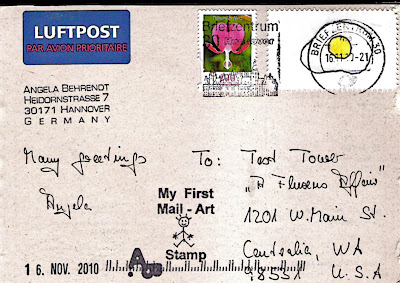 LUFTPOST
PAR AVION PRIORITAIRE
Briefzentrum
30
BRIEFZENTRUM 30
-21
ANGELA BEHRENDT
HEIDORNSTRASSE 7
30171 HANNOVER
GERMANY
Many greetings
Angela
To: Text Tower
"A Fluxus Affair"
1201 W. Main St.
Centralia, WA
98531 U.S.A
My First
Mail - Art
Stamp
16. NOV. 2010